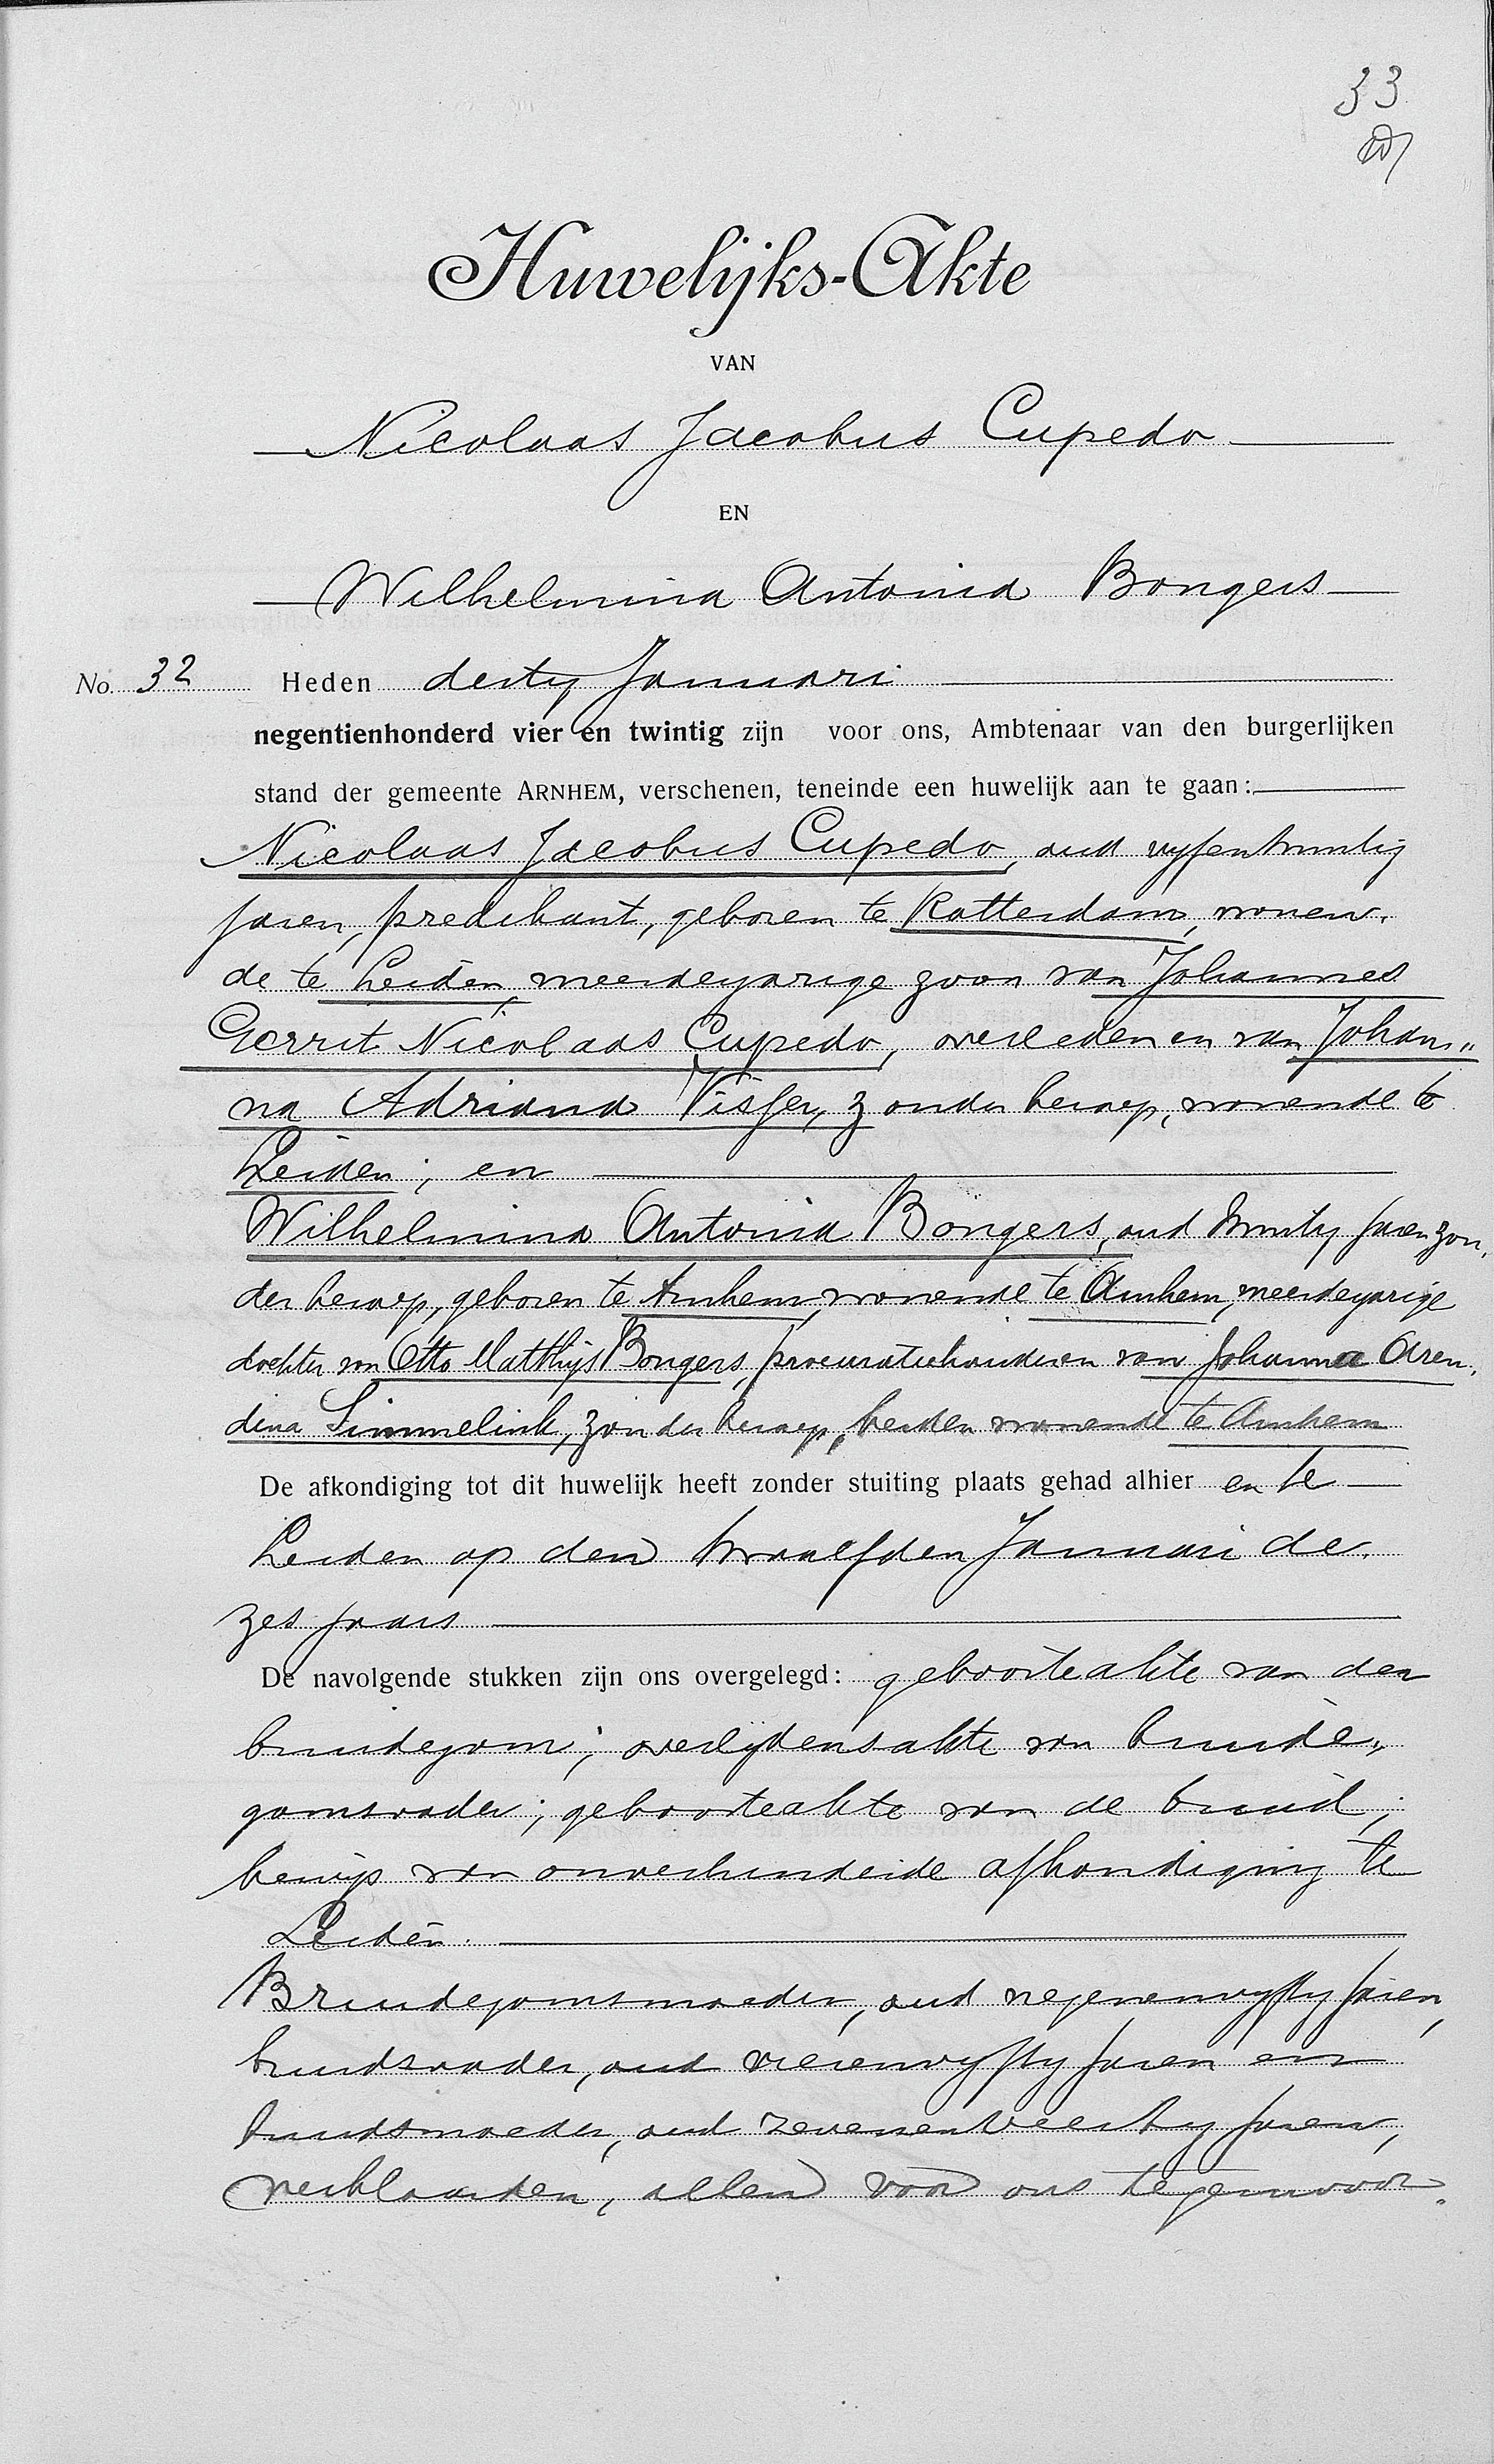 33
Huwelijks-Akte
VAN
Nicolaas Jacobus Cupedo
EN
Wilhelmina Antonia Bongers
No. 32 Heden dertig Januari
negentienhonderd vier en twintig zijn voor ons, Ambtenaar van den burgerlijken
stand der gemeente ARNHEM, verschenen, teneinde een huwelijk aan te gaan:
Nicolaas Jacobus Cupedo, oud vijfentwintig
jaren, predikant, geboren te Rotterdam, wonen-
de te Leiden, meerderjarige zoon van Johannes
Gerrit Nicolaas Cupedo, overleden en van Johan„
na Adriana Visser, zonder beroep, wonende te
Leiden; en
Wilhelmina Antonia Bongers, oud twintig jaren, zon-
der beroep, geboren te Arnhem, wonende te Arnhem, meerderjarige
dochter van Otto Matthijs Bongers, procuratiehouder en van Johanna Aren-
dina Simmelink, zonder beroep, beiden wonende te Arnhem
De afkondiging tot dit huwelijk heeft zonder stuiting plaats gehad alhier en te
Leiden op den twaalfden Januari de-
zes jaars
De navolgende stukken zijn ons overgelegd: geboorteakte van den
bruidegom; overlijdensakte van bruide„
gomsvader; geboorteakte van de bruid;
bewijs van onverhinderde afkondiging te
Leiden.
Bruidegomsmoeder, oud negenenvijftig jaren,
bruidsvader, oud vierenvijftig jaren en
bruidsmoeder, oud zevenenveertig jaren,
verklaarden, allen voor ons tegenwoor-